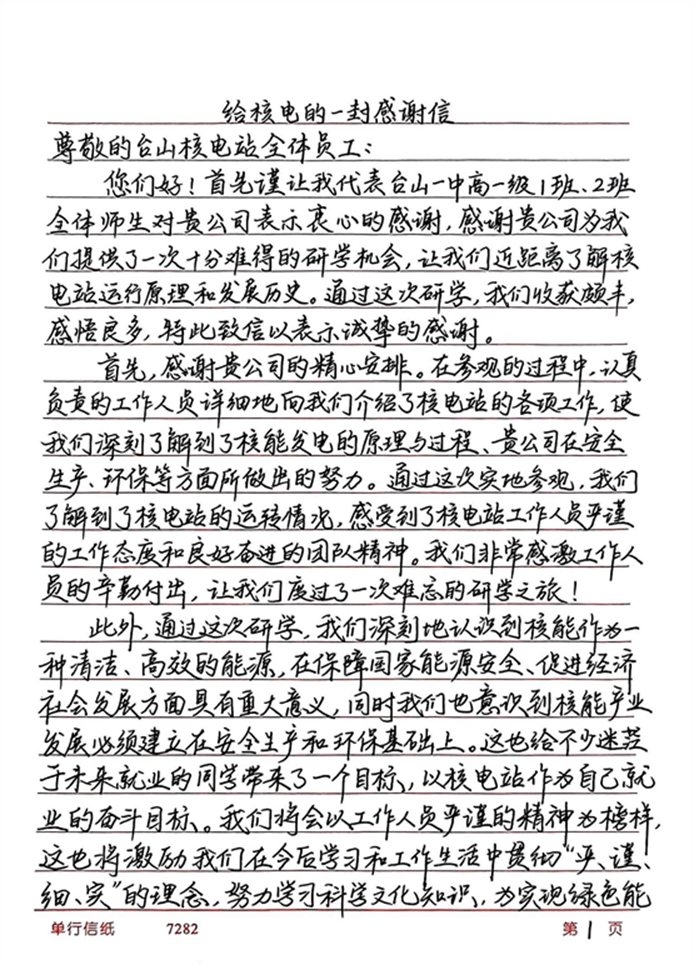 给核电的一封感谢信
尊敬的台山核电站全体员工：
您们好！首先谨让我代表台山一中高一级1班、2班
全体师生对贵公司表示衷心的感谢，感谢贵公司为我
们提供了一次十分难得的研学机会，让我们近距离了解核
电站运行原理和发展历史。通过这次研学，我们收获颇丰，
感悟良多，特此致信以表示诚挚的感谢。
首先，感谢贵公司的精心安排。在参观的过程中，认真
负责的工作人员详细地向我们介绍了核电站的各项工作，使
我们深刻了解到了核能发电的原理与过程、贵公司在安全
生产、环保等方面所做出的努力。通过这次实地参观，我们
了解到了核电站的运转情况，感受到了核电站工作人员严谨
的工作态度和良好奋进的团队精神。我们非常感激工作人
员的辛勤付出，让我们度过了一次难忘的研学之旅！
此外，通过这次研学，我们深刻地认识到核能作为一
种清洁、高效的能源，在保障国家能源安全、促进经济
社会发展方面具有重大意义，同时我们也意识到核能产业
发展必须建立在安全生产和环保基础上。这也给不少迷茫
于未来就业的同学带来了一个目标，以核电站作为自己就
业的奋斗目标。我们将会以工作人员严谨的精神为榜样，
这也将激励我们在今后学习和工作生活中贯彻“严、谨、
细、实”的理念，努力学习科学文化知识，为实现绿色能
单行信纸 7282 第1页